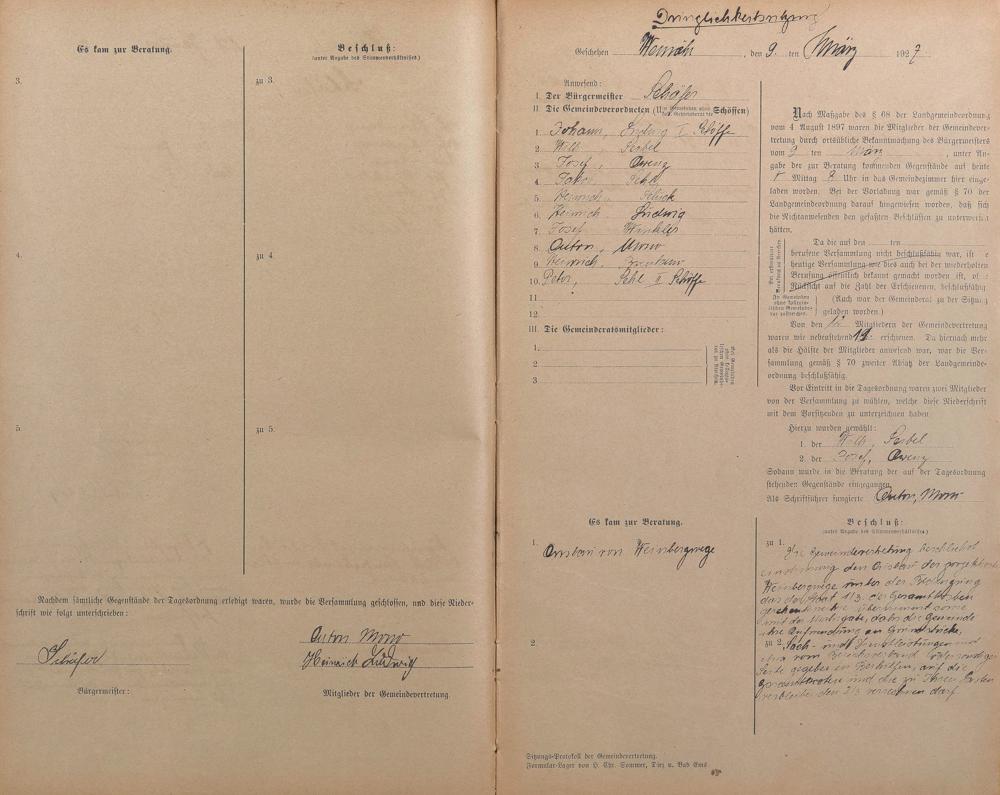 Es kam zur Beratung.
Beschluß:
(unter Angabe des Stimmenverhältnisses)
3.
zu 3.
4.
zu 4.
5.
zu 5.
Nachdem sämtliche Gegenstände der Tagesordnung erledigt waren, wurde die Versammlung geschlossen, und diese Nieder-
schrift wie folgt unterschrieben:
Anton Mono
Schäfer
Heinrich Ludwig
Bürgermeister:
Mitglieder der Gemeindevertretung
Dringlichkeitssitzung
Geschehen Weinähr, den 9. ten März 1927
Anwesend:
I. Der Bürgermeister Schäfer
II. Die Gemeindeverordneten Schöffen)
1 Johann, Ludwig I Schöffe
2. Wilh,
3. Josef,
4.
5. Heinrich, Schick
6. Heinrich, Ludwig
7. Josef Winkler
8. Anton, Mono
9. Heinrich,
10. Peter, II Schöffe
11
12.
III. Die Gemeinderatsmitglieder:
1.
2.
3
Nach Maßgabe des § 68 der Landgemeindeordnung
vom 4 August 1897 waren die Mitglieder der Gemeindever-
tretung durch ortsübliche Bekanntmachung des Bürgermeisters
vom 9 ten März, unter An-
gabe der zur Beratung kommenden Gegenstände auf heute
Mittag 8 Uhr in das Gemeindezimmer hier einge-
laden worden. Bei der Vorladung war gemäß § 70 der
Landgemeindeordnung darauf hingewiesen worden, daß sich
die Nichtanwesenden den gefaßten Beschlüssen zu unterwerfen
hätten.
Da die auf den ten
berufene Versammlung nicht beschlußfähig war, ist
heutige Versammlung wie dies auch bei der wiederholten
Berufung öffentlich bekannt gemacht worden ist, o
Rücksicht auf die Zahl der Erschienenen, beschlußfähig
(Auch war der Gemeinderat zu der Sitzung
geladen worden)
Von den 12 Mitgliedern der Gemeindevertretung
waren wie nebenstehend erschienen. Da hiernach mehr
als die Hälfte der Mitglieder anwesend war, war die Ver-
sammlung gemäß § 70 zweiter Absatz der Landgemeinde-
ordnung beschlußfähig.
Vor Eintritt in die Tagesordnung waren zwei Mitglieder
von der Versammlung zu wählen, welche diese Niederschrift
mit dem Vorsitzenden zu unterzeichnen haben
Hierzu wurden gewählt:
1. der Wilh,
2. der Josef,
Sodann wurde in die Beratung der auf der Tagesordnung
stehenden Gegenstände eingegangen
Als Schriftführer fungierte Anton, Mono
Es kam zur Beratung.
Beschluß:
(unter Angabe des Stimmenverhältnisses)
1. Ausbau von Weinbergwege
zu 1. Die Gemeindevertretung beschließt
den Ausbau der
Weinbergwege unter der Bedingung
das der Staat 2/3 der Gesamtkosten
übernimmt sowie
mit der Maßgabe, dass die Gemeinde
ihre Aufwendung an Grundstücke,
2.
zu 2. Sach- und Dienstleistungen und
etwa vom oder sonstiger
Seite gegebenen Beihilfen, auf die
Gesamtkosten und die zu Ihren Lasten
verbleibenden 1/3 verrechnen darf
Sitzungs-Protokoll der Gemeindevertretung.
Formular-Lager von H. Chr. Sommer, Diez u. Bad Ems